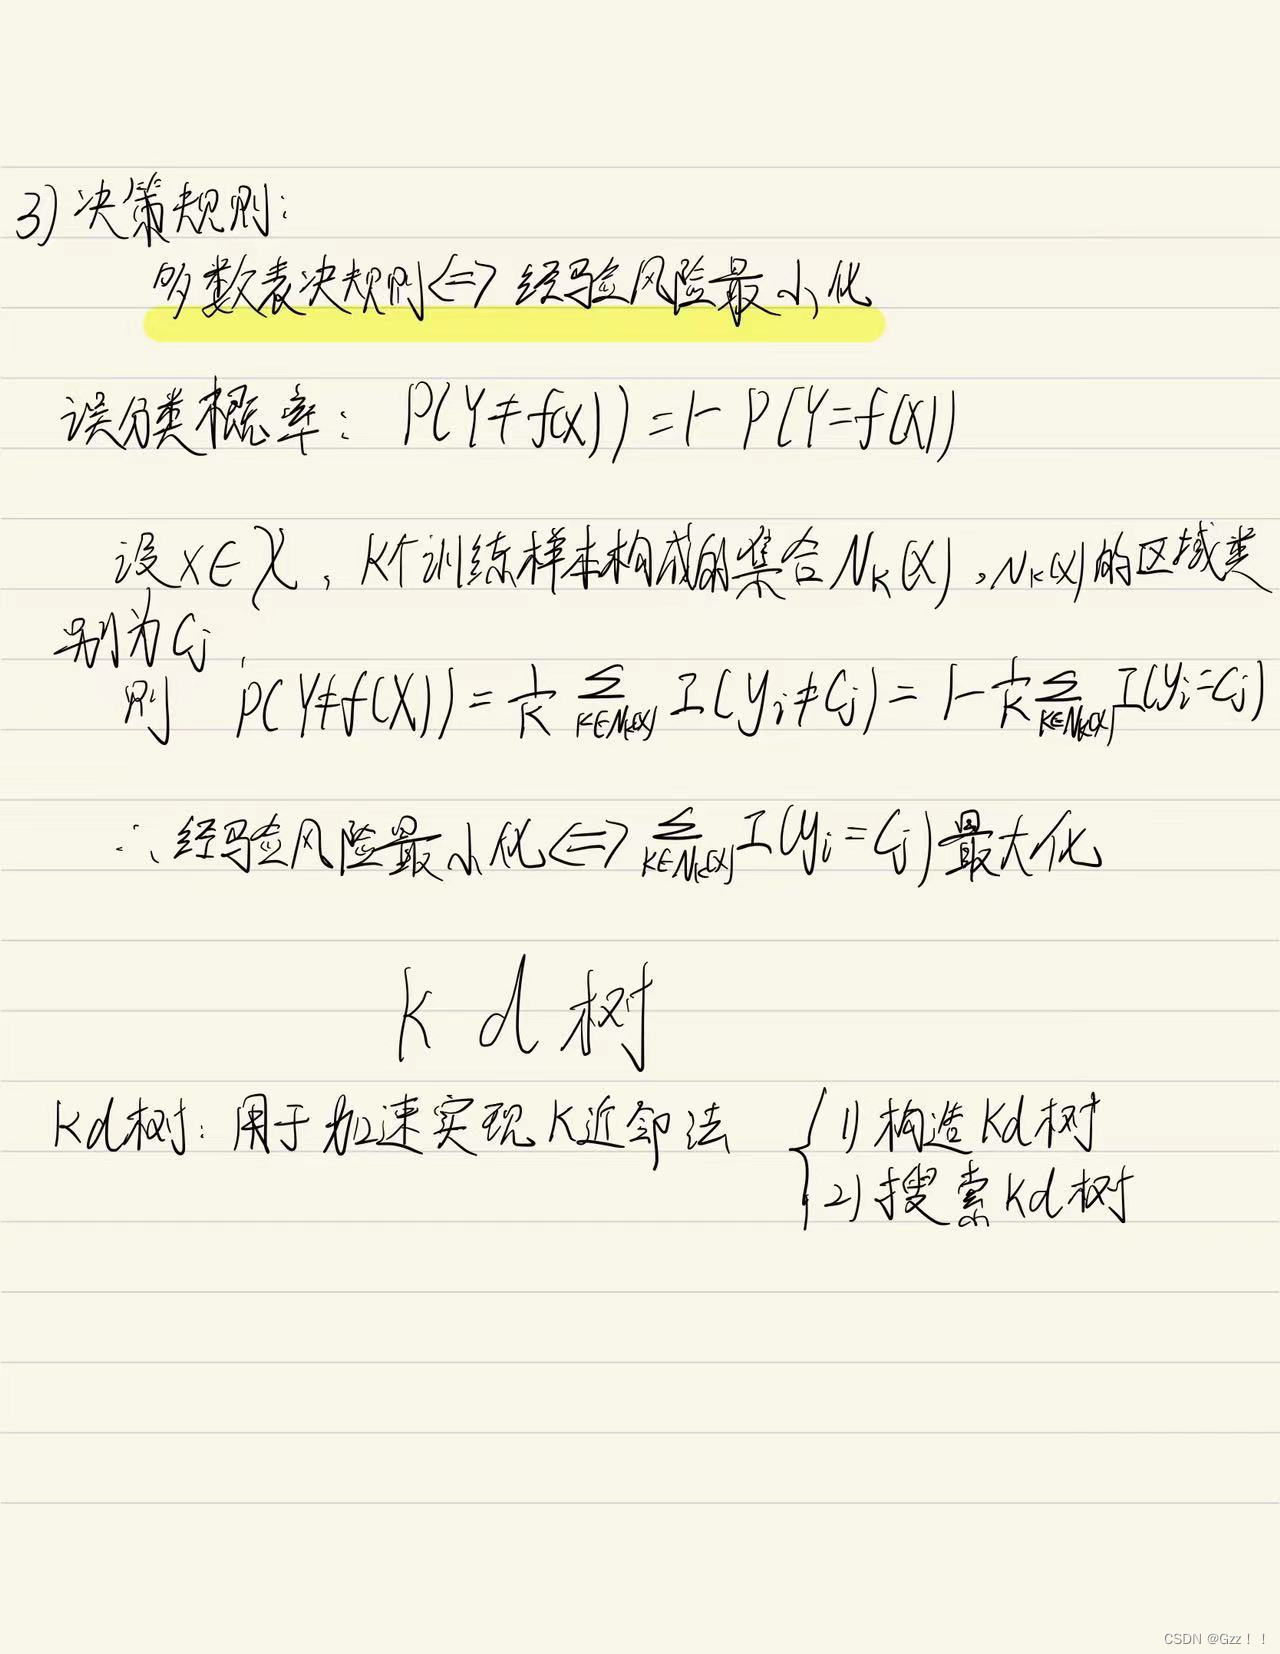 3) 决策规则:
多数表决规则<=> 经验风险最小化
误分类概率: P(Y≠f(X))=1-P(Y=f(X))
设x∈χ, K个训练样本构成的集合N_K(X)。N_K(X)的区域类
别为C_j,
则 P(Y≠f(X))=1/K Σ_{K∈N_K(X)} I(y_i≠C_j)=1-1/K Σ_{K∈N_K(X)} I(y_i=C_j)
∴经验风险最小化<=>Σ_{K∈N_K(X)} I(y_i=C_j)最大化
k d 树
Kd树: 用于加速实现K近邻法 { 1) 构造Kd树
2) 搜索Kd树
CSDN @Gzz！！